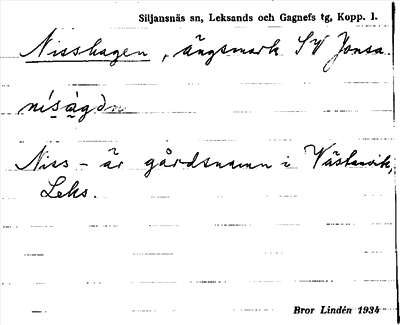 Siljansnäs sn, Leksands och Gagnefs tg, Kopp. l.
Nisshagen, ängsmark SV Jonsa.
nísàgdn
Niss- är gårdsnamn i Västanvik,
Leks.
Bror Lindén 1934